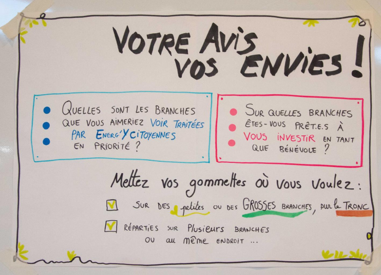 VOTRE AVIS
VOS ENVIES !
QUELLES SONT LES BRANCHES
QUE VOUS AIMERIEZ VOIR TRAITÉES
PAR ENERG'Y CITOYENNES
EN PRIORITÉ ?
SUR QUELLES BRANCHES
ÊTES-VOUS PRÊT.E.S À
VOUS INVESTIR EN TANT
QUE BÉNÉVOLE ?
Mettez vos gommettes où vous voulez :
SUR DES petites OU DES GROSSES BRANCHES, sur le TRONC
RÉPARTIES SUR PLUSIEURS BRANCHES
OU AU MÊME ENDROIT ...